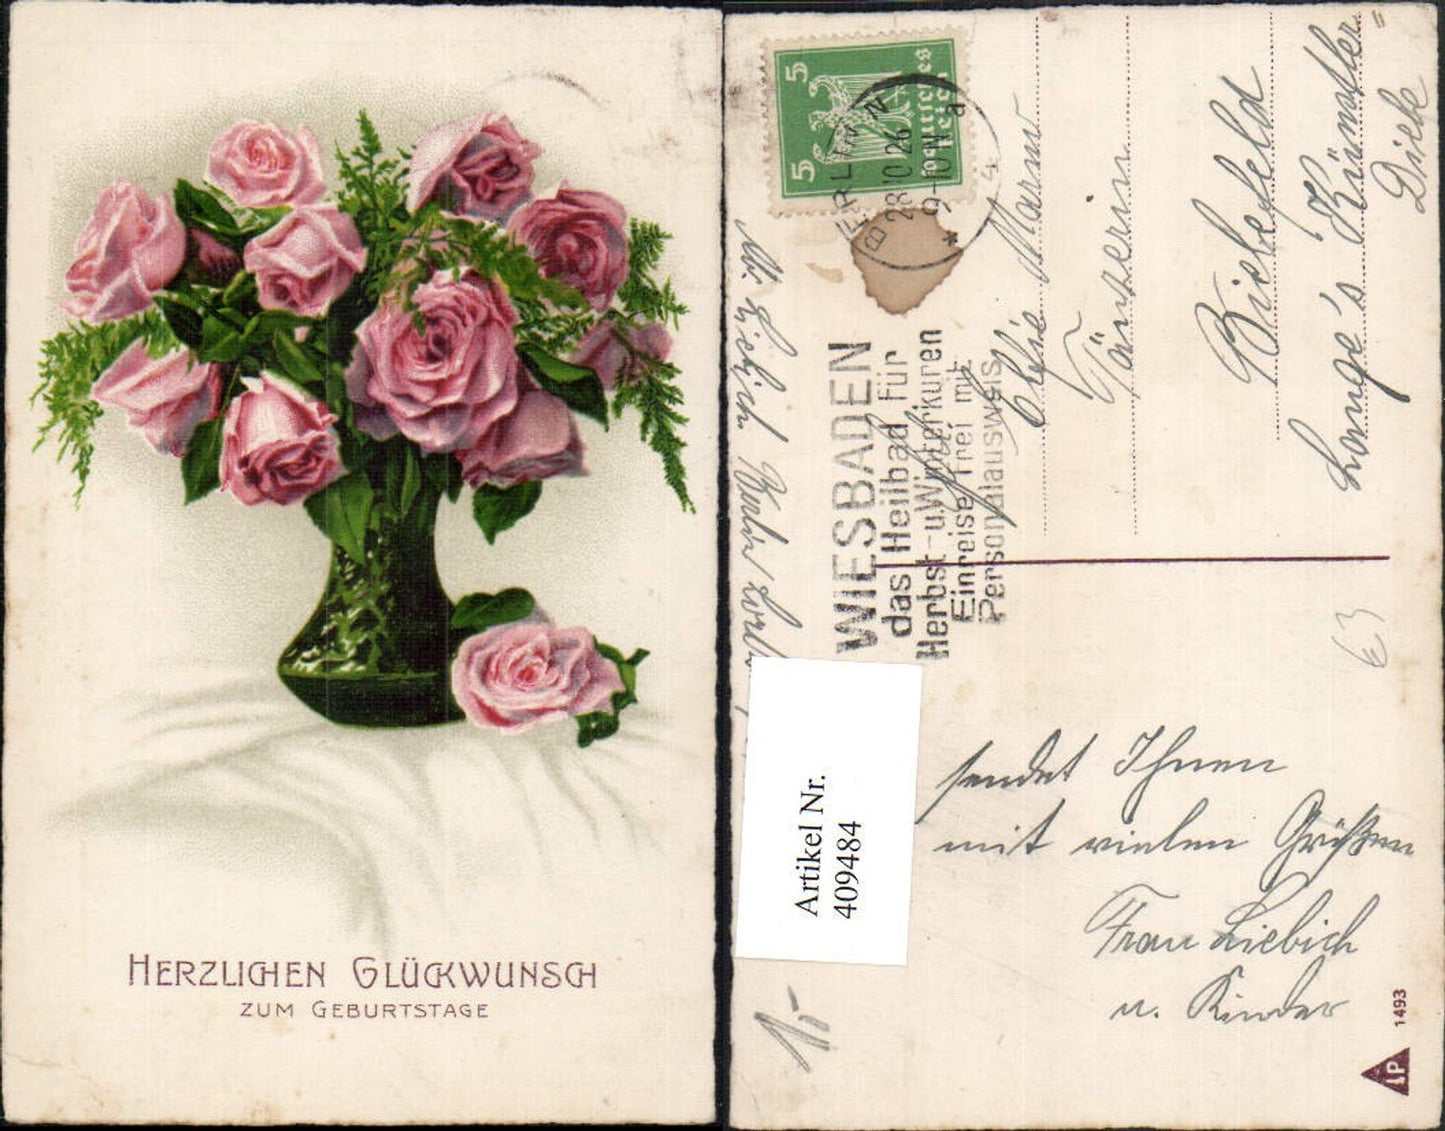 HERZLICHEN GLÜCKWUNSCH
ZUM GEBURTSTAGE
5 5
Deutsches
Reich
BERLIN N
28.10.26
9-10 N
* 4 a
WIESBADEN
das Heilbad für
Herbst-u.Winterkuren
Einreise frei mit
Personalausweis
Elfie Mann
Tänzerin
Bielefeld
Lange's Künstler=
Diele
Liebich Berlin
Artikel Nr.
409484
sendet Ihnen
mit vielen Grüßen
Frau Liebich
u. Kinder
63
1493